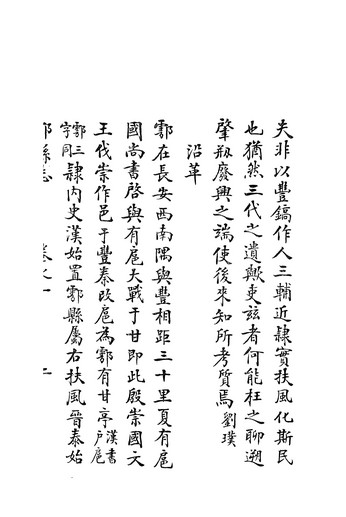 夫非以豐鎬作人三輔近隸實扶風化斯民
也猶然三代之遺歟吏茲者何能枉之聊遡
肇剏廢興之端使後來知所考質焉劉璞
沿革
鄠在長安西南隅與豐相距三十里夏有扈
國尚書啓與有扈大戰于甘即此殷崇國文
王伐崇作邑于豐秦改扈為鄠有甘亭漢書戶扈
鄠三字同隸內史漢始置鄠縣屬右扶風晉泰始
縣志 卷之一 二